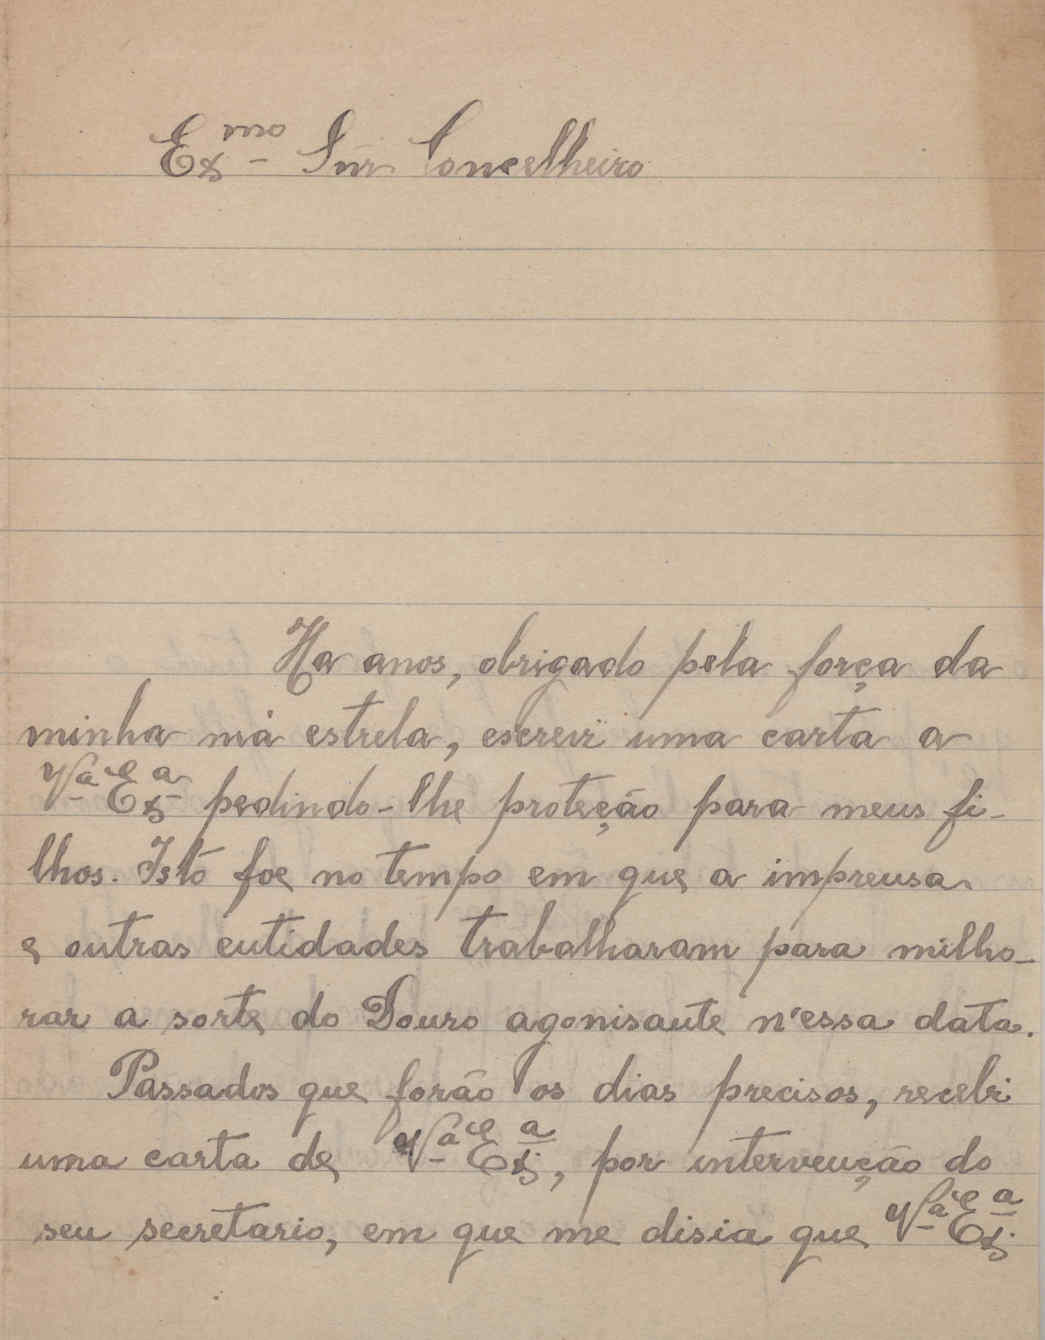 Exmo Snr Concelheiro
Ha anos, obrigado pela força da
minha má estrela, escrevi uma carta a
Va Exa pedindo-lhe proteção para meus fi-
lhos. Isto foe no tempo em que a imprensa
e outras entidades trabalharam para milho-
rar a sorte do Douro agonisante n'essa data.
Passados que forão os dias precisos, recebi
uma carta de Va Exa, por intervenção do
seu secretario, em que me disia que Va Exa